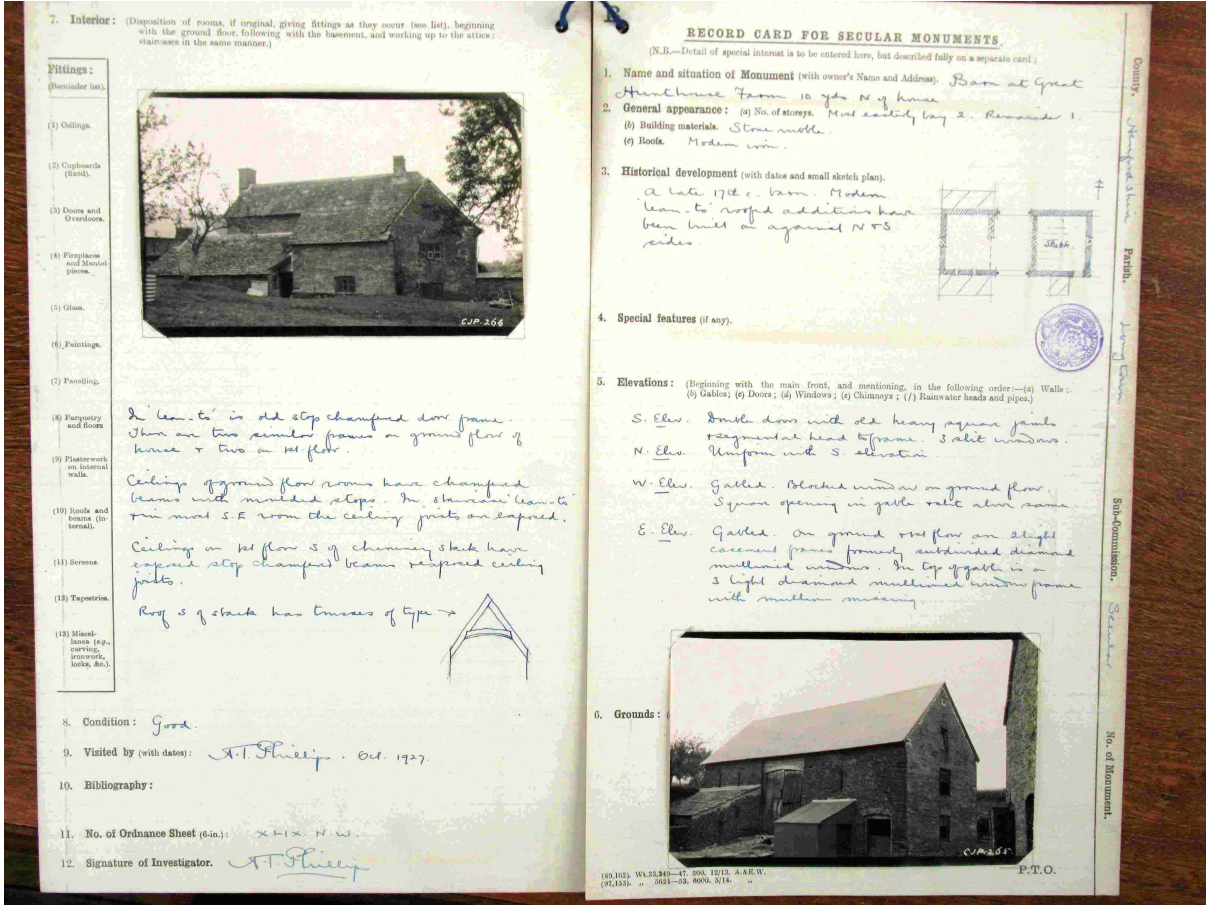 7. Interior: (Disposition of rooms, if original, giving fittings as they occur (see list), beginning
with the ground floor, following with the basement, and working up to the attics:
staircases in the same manner.)
Fittings:
(Reminder list).
(1) Ceilings.
(2) Cupboards
(fixed).
(3) Doors and
Overdoors.
(4) Fireplaces
and Mantel-
pieces.
(5) Glass.
(6) Paintings.
(7) Panelling.
(8) Parquetry
and floors
(9) Plasterwork
on internal
walls.
(10) Roofs and
beams (in-
ternal).
(11) Screens.
(12) Tapestries.
(13) Miscel-
lanea (e.g.,
carving,
ironwork,
locks, &c.).
CJP. 266
In 'lean-to' is old stop chamfered door frame.
There are two similar frames on ground floor of
house + two on 1st floor.
Ceilings of ground floor rooms have chamfered
beams with moulded stops. In staircase 'lean-to'
+ in most S.E room the ceiling joists are exposed.
Ceilings on 1st floor S of chimney stack have
exposed stop chamfered beams + exposed ceiling
joists.
Roof S of stack has trusses of type
8. Condition: Good.
9. Visited by (with dates): A.T. Phillips. Oct. 1927.
10. Bibliography:
11. No. of Ordnance Sheet (6-in.): XLIX. N.W.
12. Signature of Investigator. A.T. Phillips
RECORD CARD FOR SECULAR MONUMENTS
(N.B.—Detail of special interest is to be entered here, but described fully on a separate card.)
1. Name and situation of Monument (with owner's Name and Address). Barn at Great
Hunthouse Farm 10 yds N of house
2. General appearance: (a) No. of storeys. Most easterly bay 2. Remainder 1.
(b) Building materials. Stone rubble.
(c) Roofs. Modern iron.
3. Historical development (with dates and small sketch plan).
A late 17th c. barn. Modern
'lean-to' roofed additions have
been built on against N & S
sides.
Stable.
4. Special features (if any).
5. Elevations: (Beginning with the main front, and mentioning, in the following order:—(a) Walls;
(b) Gables; (c) Doors; (d) Windows; (e) Chimneys; (f) Rainwater heads and pipes.)
S. Elev. Double doors with old heavy square jambs
+ segmental head to frame. 3 slit windows.
N. Elev. Uniform with S. elevation.
W. Elev. Gabled. Blocked window on ground floor.
Square opening in gable + slit above same.
E. Elev. Gabled. On ground + 1st floor are 2 light
casement frames formerly subdivided diamond
mullioned windows. In top of gable is a
3 light diamond mullioned window frame
with mullion missing
6. Grounds: (
CJP. 265.
(89,102). Wt.33,349—47. 500. 12/13. A.&E.W.
(97,153). „ 5621—53. 6000. 5/14. „
P.T.O.
County. Herefordshire
Parish. Longtown
Sub-Commission. Secular
No. of Monument.